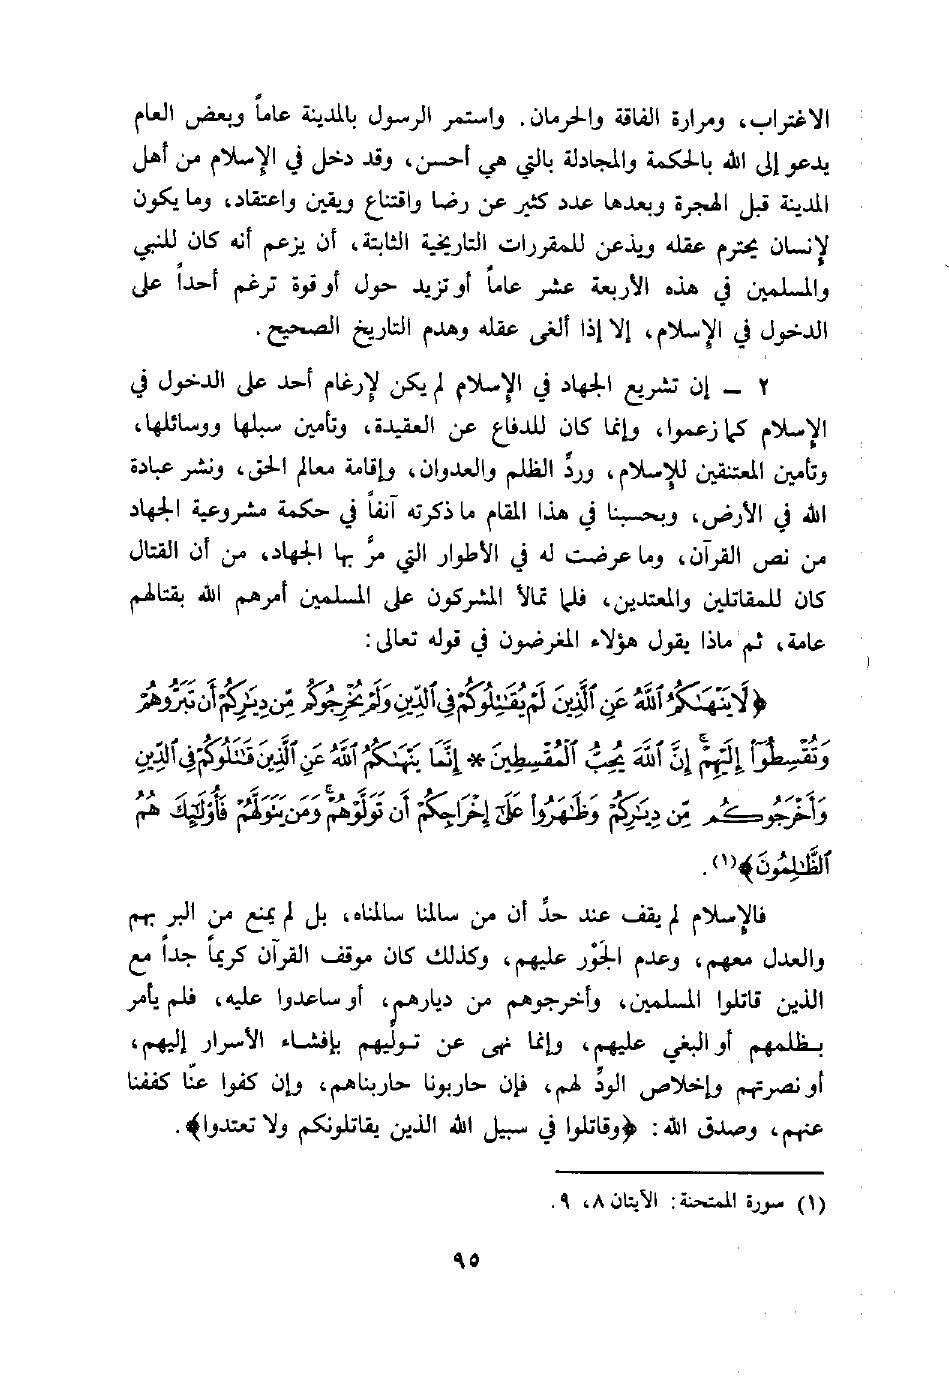 الاغتراب، ومرارة الفاقة والحرمان. واستمر الرسول بالمدينة عاماً وبعض العام
يدعو إلى الله بالحكمة والمجادلة بالتي هي أحسن، وقد دخل في الإسلام من أهل
المدينة قبل الهجرة وبعدها عدد كثير عن رضا واقتناع ويقين واعتقاد، وما يكون
لإنسان يحترم عقله ويذعن للمقررات التاريخية الثابتة، أن يزعم أنه كان للنبي
والمسلمين في هذه الأربعة عشر عاماً أو تزيد حول أو قوة ترغم أحداً على
الدخول في الإسلام، إلا إذا ألغى عقله وهدم التاريخ الصحيح.
٢ ـ إن تشريع الجهاد في الإسلام لم يكن لإرغام أحد على الدخول في
الإسلام كما زعموا، وإنما كان للدفاع عن العقيدة، وتأمين سبلها ووسائلها،
وتأمين المعتنقين للإسلام، وردِّ الظلم والعدوان، وإقامة معالم الحق، ونشر عبادة
الله في الأرض، وبحسبنا في هذا المقام ما ذكرته آنفاً في حكمة مشروعية الجهاد
من نص القرآن، وما عرضت له في الأطوار التي مرَّ بها الجهاد، من أن القتال
كان للمقاتلين والمعتدين، فلما تمالأ المشركون على المسلمين أمرهم الله بقتالهم
عامة، ثم ماذا يقول هؤلاء المغرضون في قوله تعالى:
﴿لَّا يَنْهَىٰكُمُ ٱللَّهُ عَنِ ٱلَّذِينَ لَمْ يُقَٰتِلُوكُمْ فِى ٱلدِّينِ وَلَمْ يُخْرِجُوكُم مِّن دِيَٰرِكُمْ أَن تَبَرُّوهُمْ
وَتُقْسِطُوٓا۟ إِلَيْهِمْ ۚ إِنَّ ٱللَّهَ يُحِبُّ ٱلْمُقْسِطِينَ * إِنَّمَا يَنْهَىٰكُمُ ٱللَّهُ عَنِ ٱلَّذِينَ قَٰتَلُوكُمْ فِى ٱلدِّينِ
وَأَخْرَجُوكُم مِّن دِيَٰرِكُمْ وَظَٰهَرُوا۟ عَلَىٰٓ إِخْرَاجِكُمْ أَن تَوَلَّوْهُمْ ۚ وَمَن يَتَوَلَّهُمْ فَأُو۟لَٰٓئِكَ هُمُ
ٱلظَّٰلِمُونَ﴾(١).
فالإسلام لم يقف عند حدِّ أن من سالمنا سالمناه، بل لم يمنع من البر بهم
والعدل معهم، وعدم الجَوْر عليهم، وكذلك كان موقف القرآن كريماً جداً مع
الذين قاتلوا المسلمين، وأخرجوهم من ديارهم، أو ساعدوا عليه، فلم يأمر
بظلمهم أو البغي عليهم، وإنما نهى عن تولِّيهم بإفشاء الأسرار إليهم،
أو نصرتهم وإخلاص الودِّ لهم، فإن حاربونا حاربناهم، وإن كفوا عنّا كففنا
عنهم، وصدق الله: ﴿وقاتلوا في سبيل الله الذين يقاتلونكم ولا تعتدوا﴾.
(١) سورة الممتحنة: الآيتان ٨، ٩.
٩٥